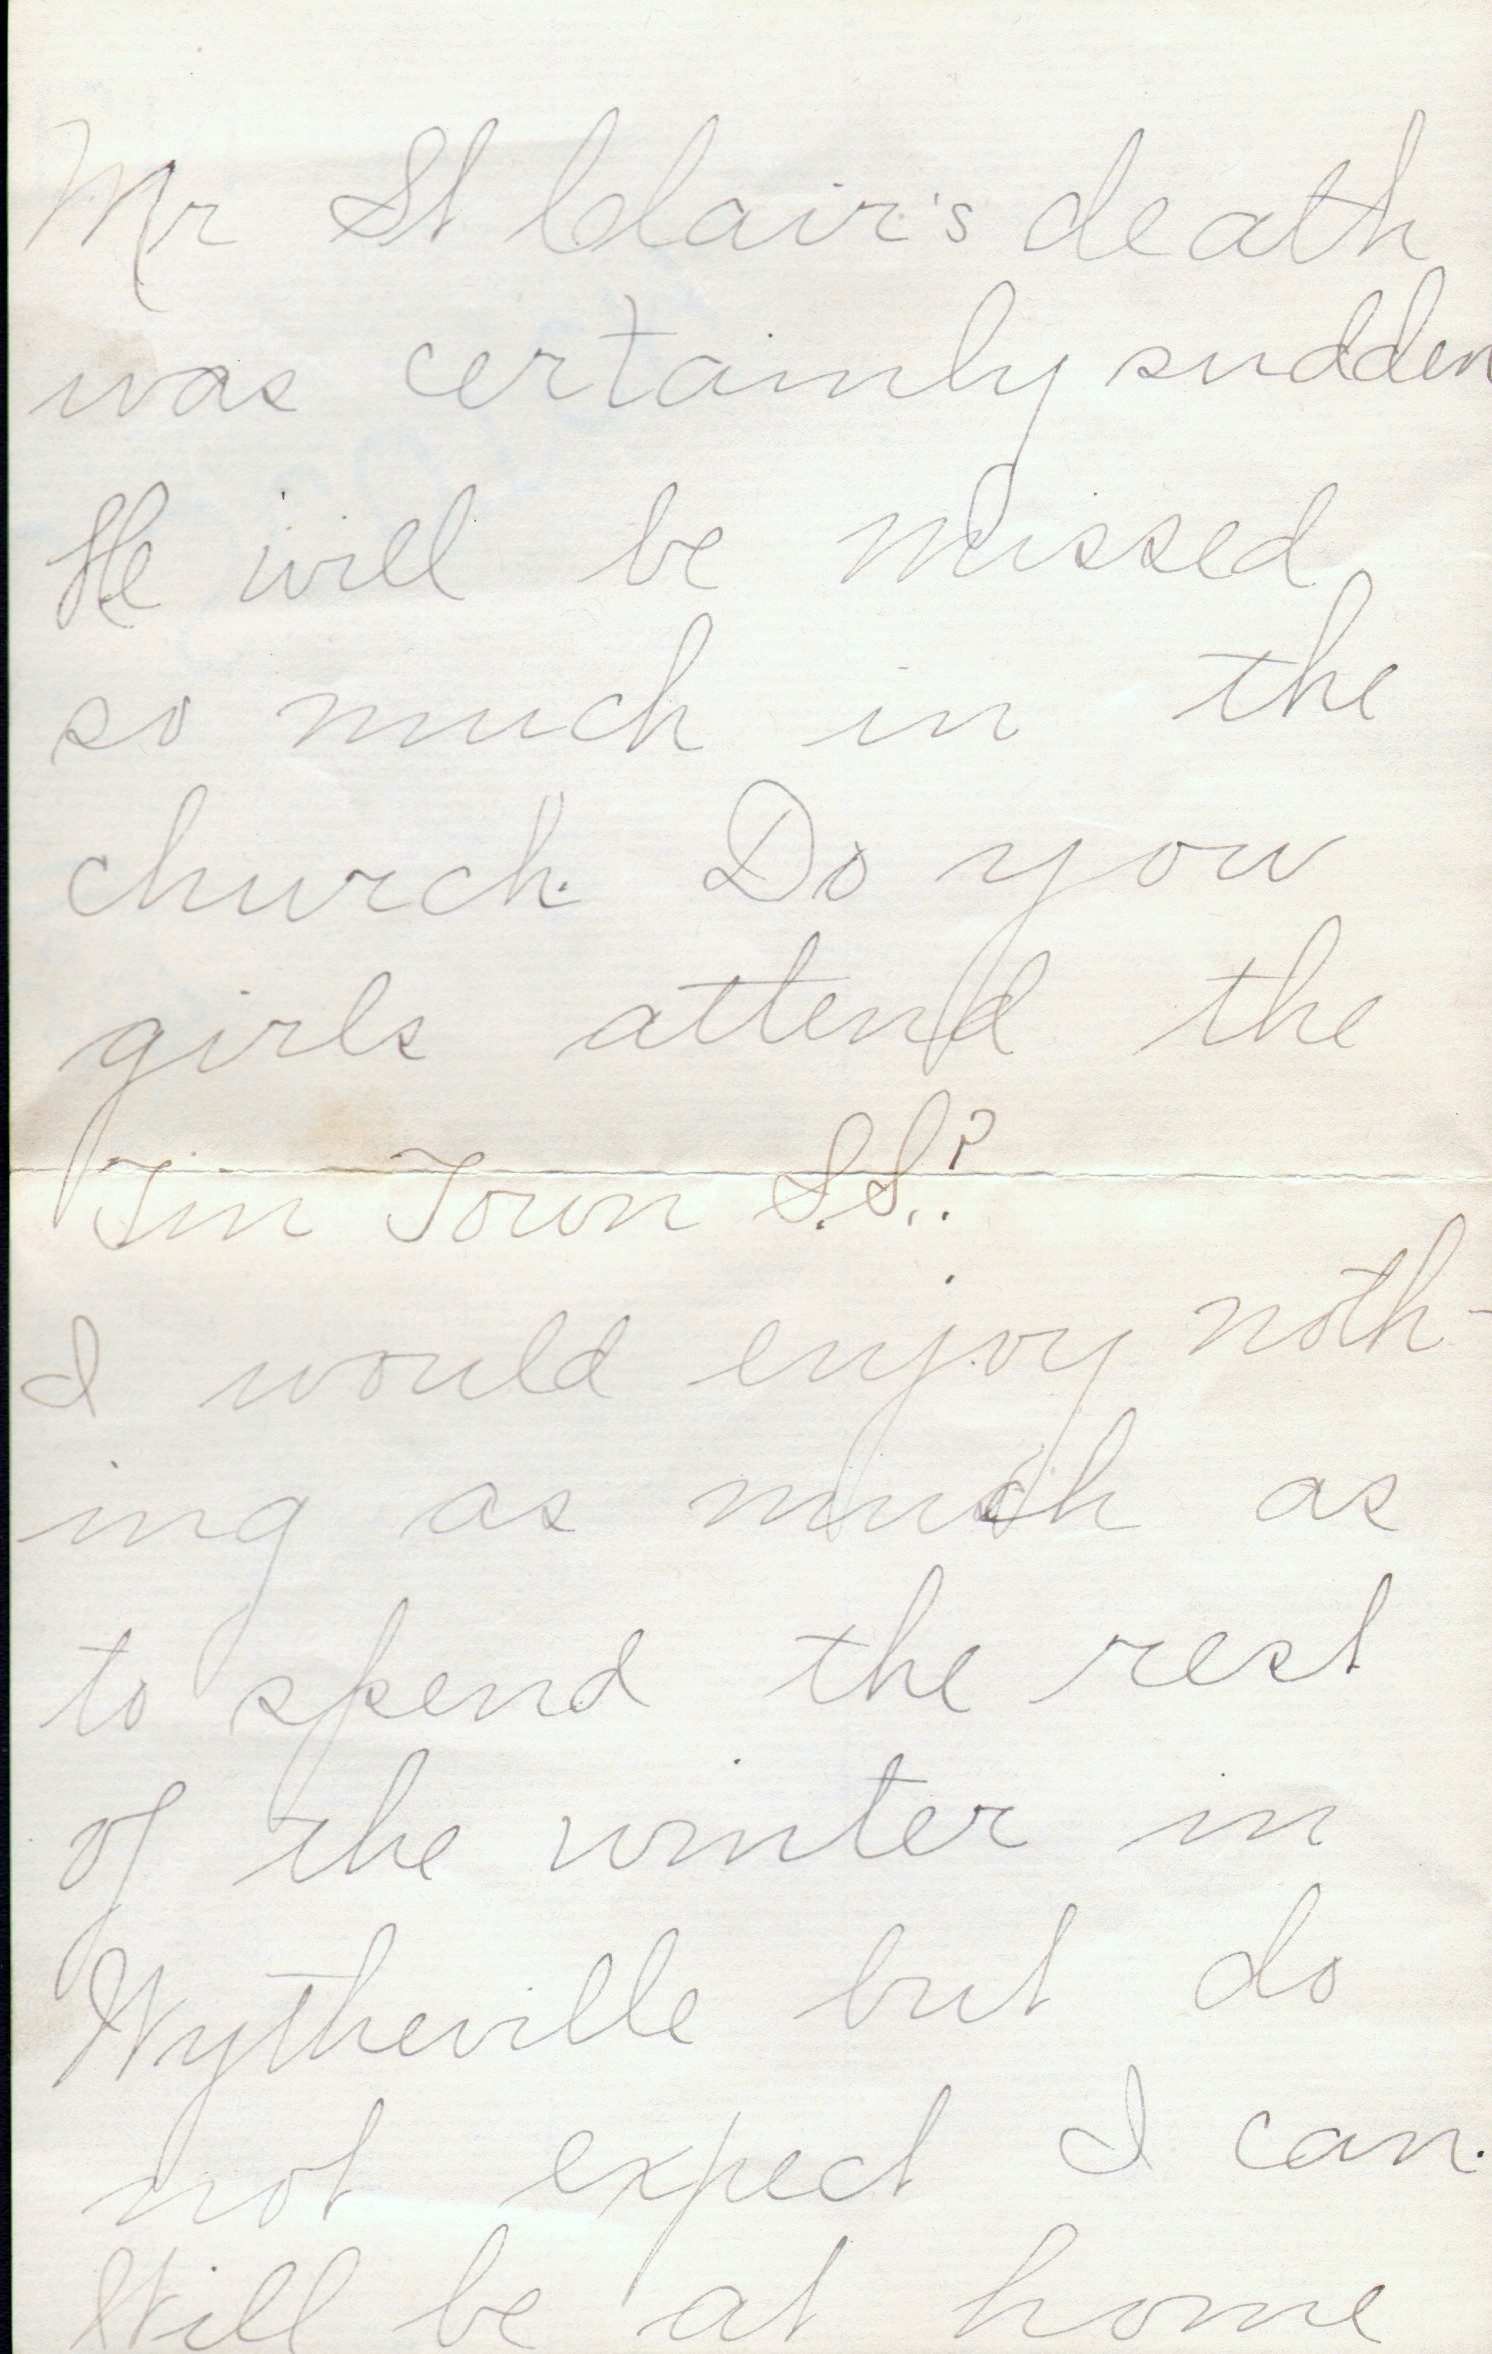 Mr St Clair's death
was certainly sudden
He will be missed
so much in the
church. Do you
girls attend the
Tin Town S.S.?
I would enjoy noth-
ing as much as
to spend the rest
of the winter in
Wytheville but do
not expect I can.
Will be at home